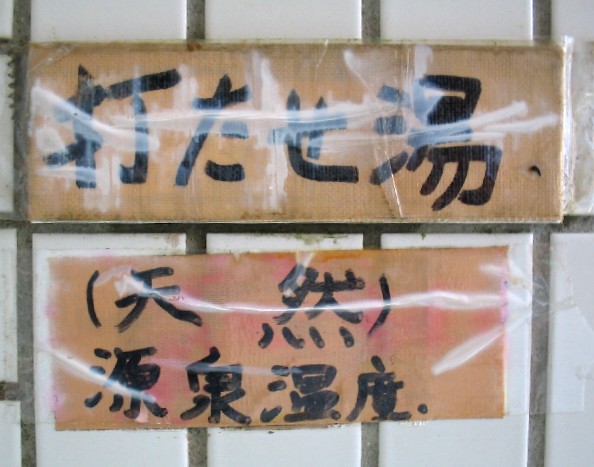 打たせ湯
(天 然)
源泉温度.